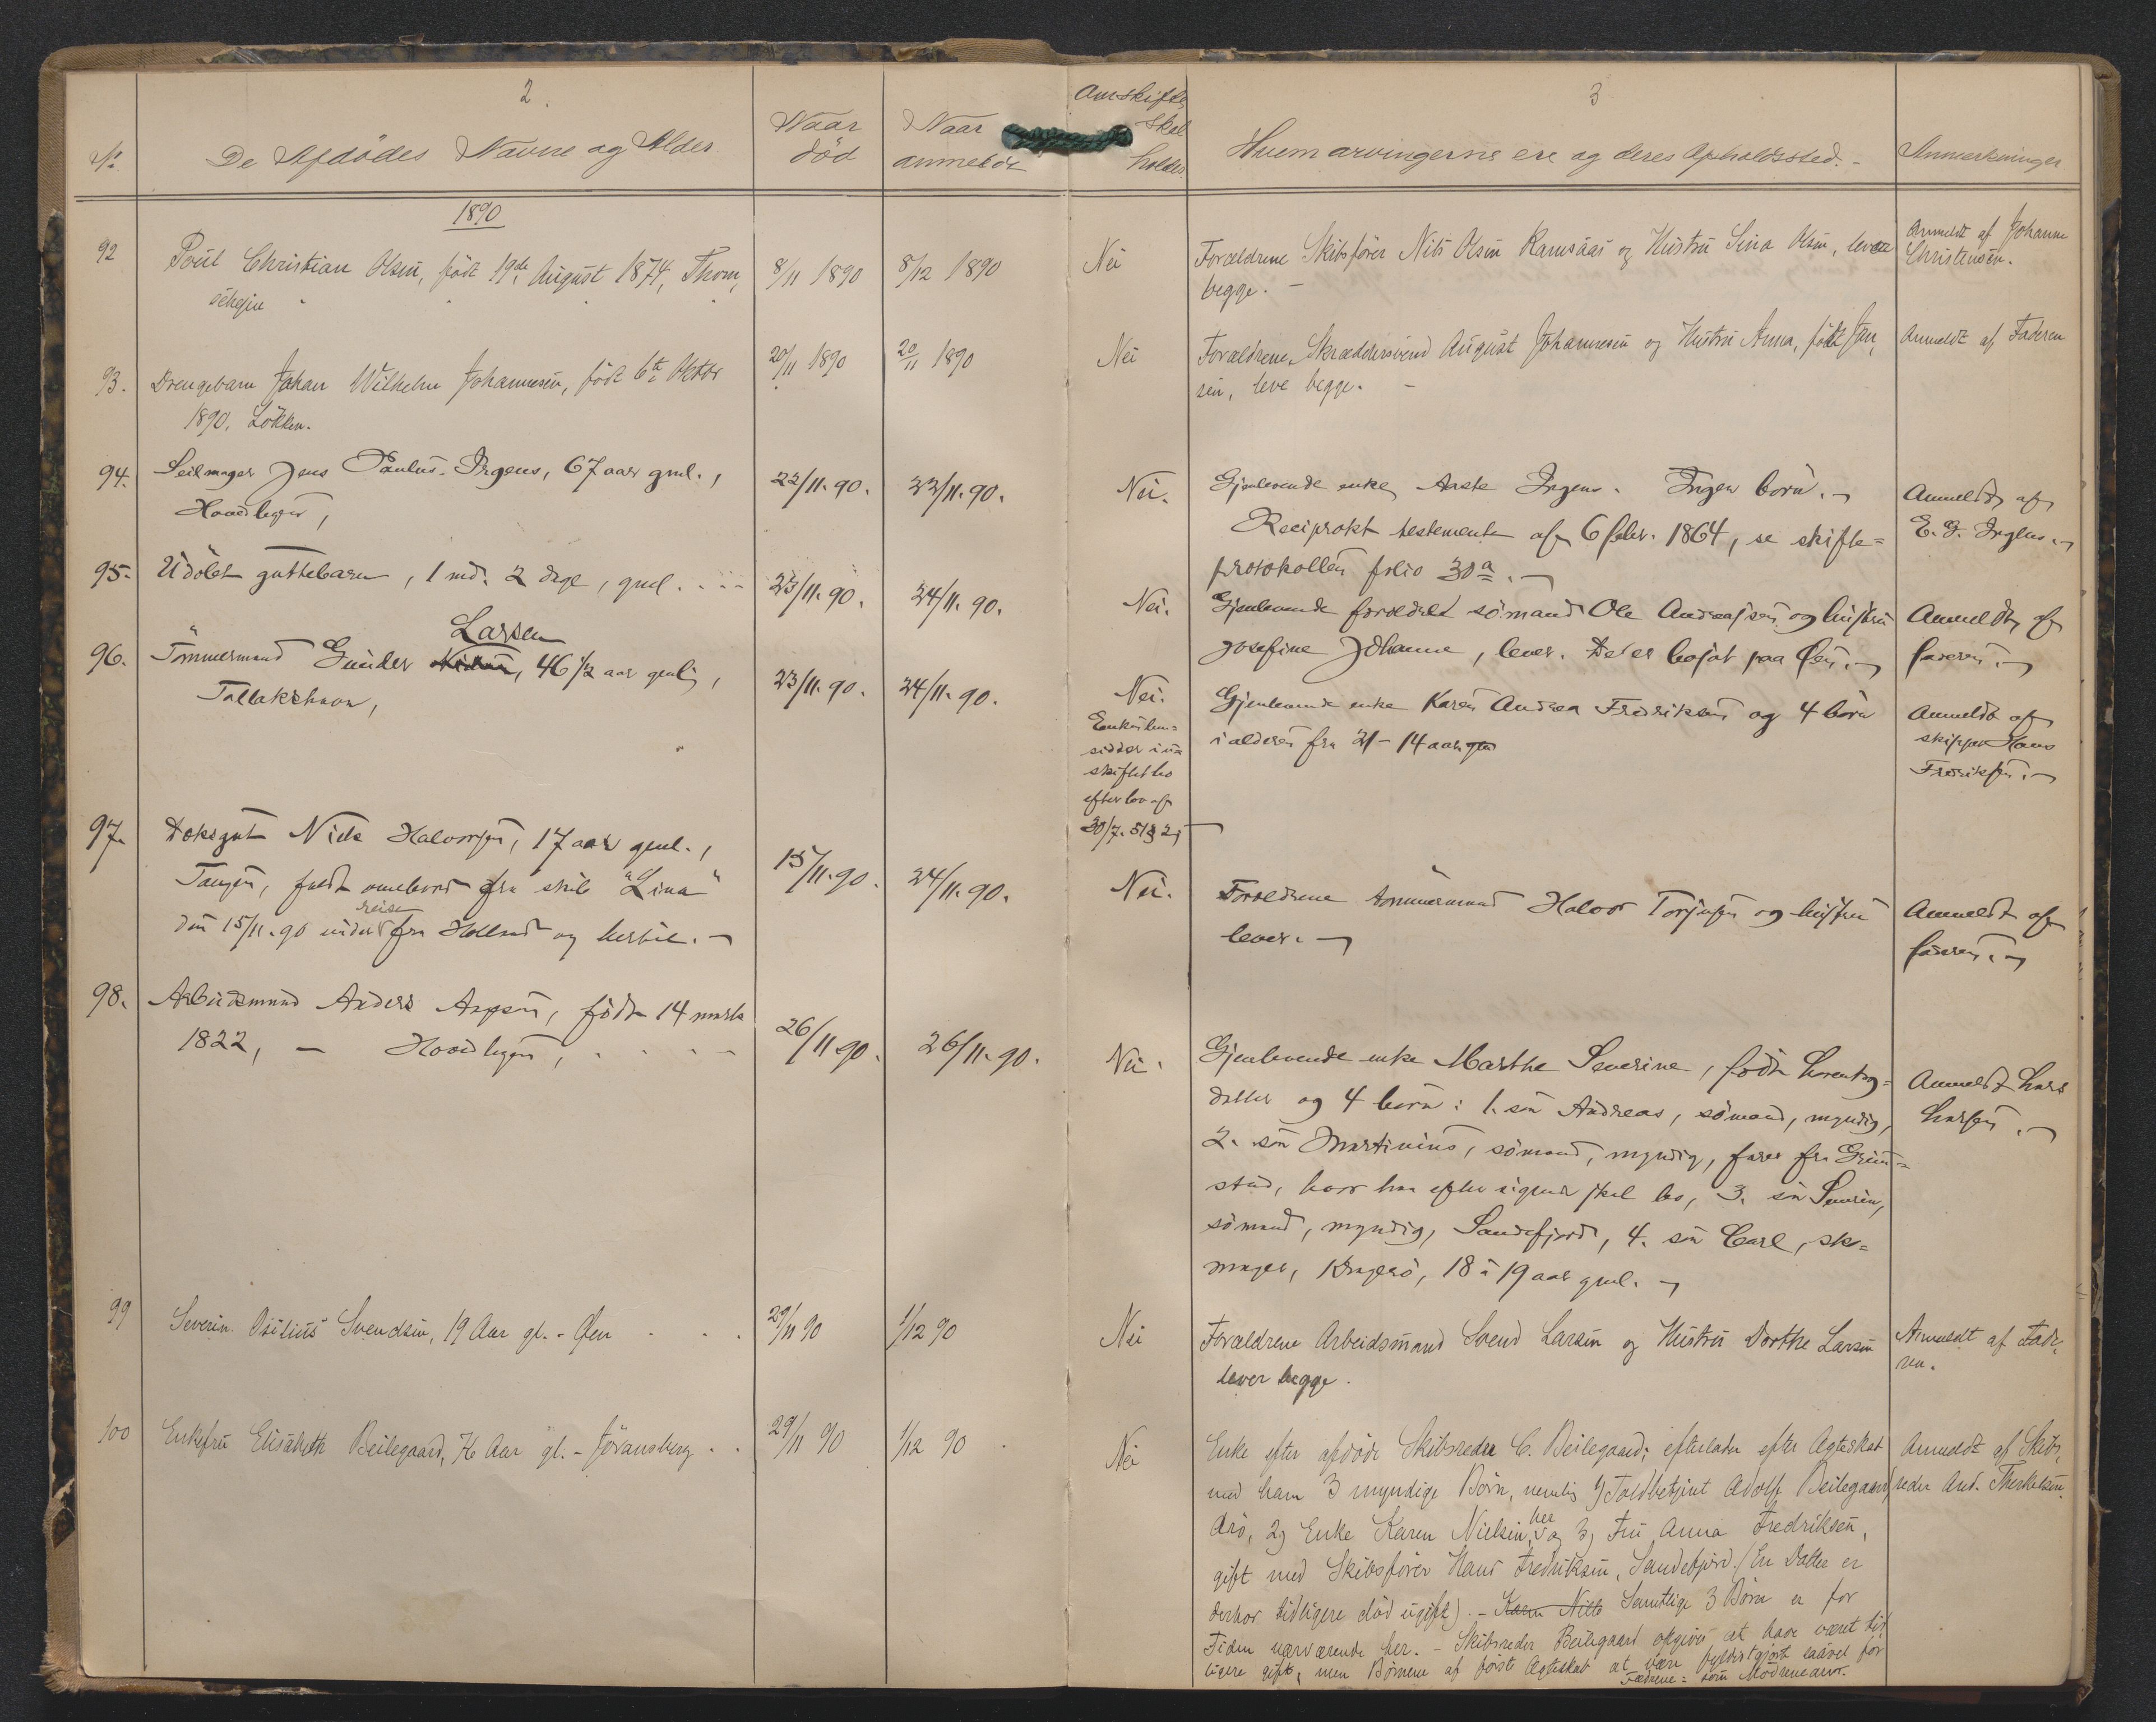 2.
No.
De Afdødes Navne og Alder.
Naar
død
Naar
anmeldt
1890
92
Poul Christian Olsen, født 19de August 1874, Thom,
8/11 1890
8/12 1890
93.
Drengebarn Johan Wilhelm Johannesen, født 6te Oktbr
1890. Løkken.
20/11 1890
20/11 1890
94.
Seilmager Jens Paulus Irgens, 67 aar gml.,
22/11. 90.
22/11. 90.
95.
Udøbt guttebarn, 1 md. 2 dage, gml.
23/11. 90.
24/11. 90.
Larsen
96.
Tømmermand Gunder 46 1/2 aar gml.,
23/11. 90.
24/11. 90.
97.
Dæksgut Niels Halvorsen, 17 aar gml.,
Tangen, faldt overbord fra skib "Lina"
15/11. 90.
24/11. 90.
reise
den 15/11. 90 under fra Holland og hertil.
98.
Arbeidsmand Anders født 14 marts
1822, –
26/11 90.
26/11. 90.
99
Severin Svendsen, 19 Aar gl. - Øen
29/11 90
1/12 90
100
Enkefru Elisabeth Beilegaard, 76 Aar gl. - Jøransberg
29/11 90
1/12 90
3
Om skifte
skal
holdes.
Hvem arvingerne ere og deres Opholdssted. -
Anmerkninger
Nei
Forældrene Skibsfører Nils Olsen Ramsaas og Hustru Sina Olsen, lever
begge. -
Anmeldt af Johanne
Christensen.
Nei
Forældrene, Skræddersvend August Johannesen og Hustru Anna, født Jan,
sen, leve begge. -
Anmeldt af Faderen
Nei.
Gjenlevende enke, Aaste Irgens. Ingen børn.
Reciprokt testemente af 6 febr. 1864, se skifte=
protokollen folio 30a.
Anmeldt af
E. Irgens.
Nei.
Gjenlevende forældre sømand Ole Andreasen og hustru
Josefine Johanne, lever. De er bosat paa Øen.
Anmeldt af
faderen.
Nei.
Enken hen=
sidder i us
skiftet bo
efter lov af
30/7. 51 § 2
Gjenlevende enke Karen Andrea Fredriksen og 4 børn
i alderen fra 21 - 14 aar
Anmeldt af
skipper Hans
Fredriksen.
Nei.
Forældrene tømmermand Halvor Torjusen og hustru
lever.
Anmeldt af
faderen.
Nei.
Gjenlevende enke Marthe Severine, født
datter og 4 børn: 1. søn Andreas, sømand, myndig,
2. søn Martinius, sømand, myndig, farer fra Grim=
stad, hvor han efter sigende skal bo, 3. søn Severin,
sømand, myndig, Sandefjord, 4. søn Carl, sko=
mager, Kragerø, 18 à 19 aar gml.
Anmeldt Lars
Larsen.
Nei
Forældrene Arbeidsmand Svend Larsen og Hustru Dorthe Larsen
lever begge.
Anmeldt af Fade,
ren.
Nei
Enke efter afdøde Skibsreder C. Beilegaard; efterlader efter Ægteskab
med ham 3 myndige Børn, nemlig 1) Toldbetjent Adolf Beilegaard,
her
2) Enke Karen Nielsen, og 3) Fru Anna Fredriksen,
gift med Skibsfører Hans Fredriksen, Sandefjord. (En Datter er
derhos tidligere død ugift). - Karen Niels Samtlige 3 Børn er for
Tiden nærværende her. - Skibsreder Beilegaard opgives at have været tid,
ligere gift, men Børnene af første Ægteskab at være fyldestgjort saavel for
Fædrene= som Mødrenearv.
Anmeldt af Skibs,
reder And. Therkelsen.